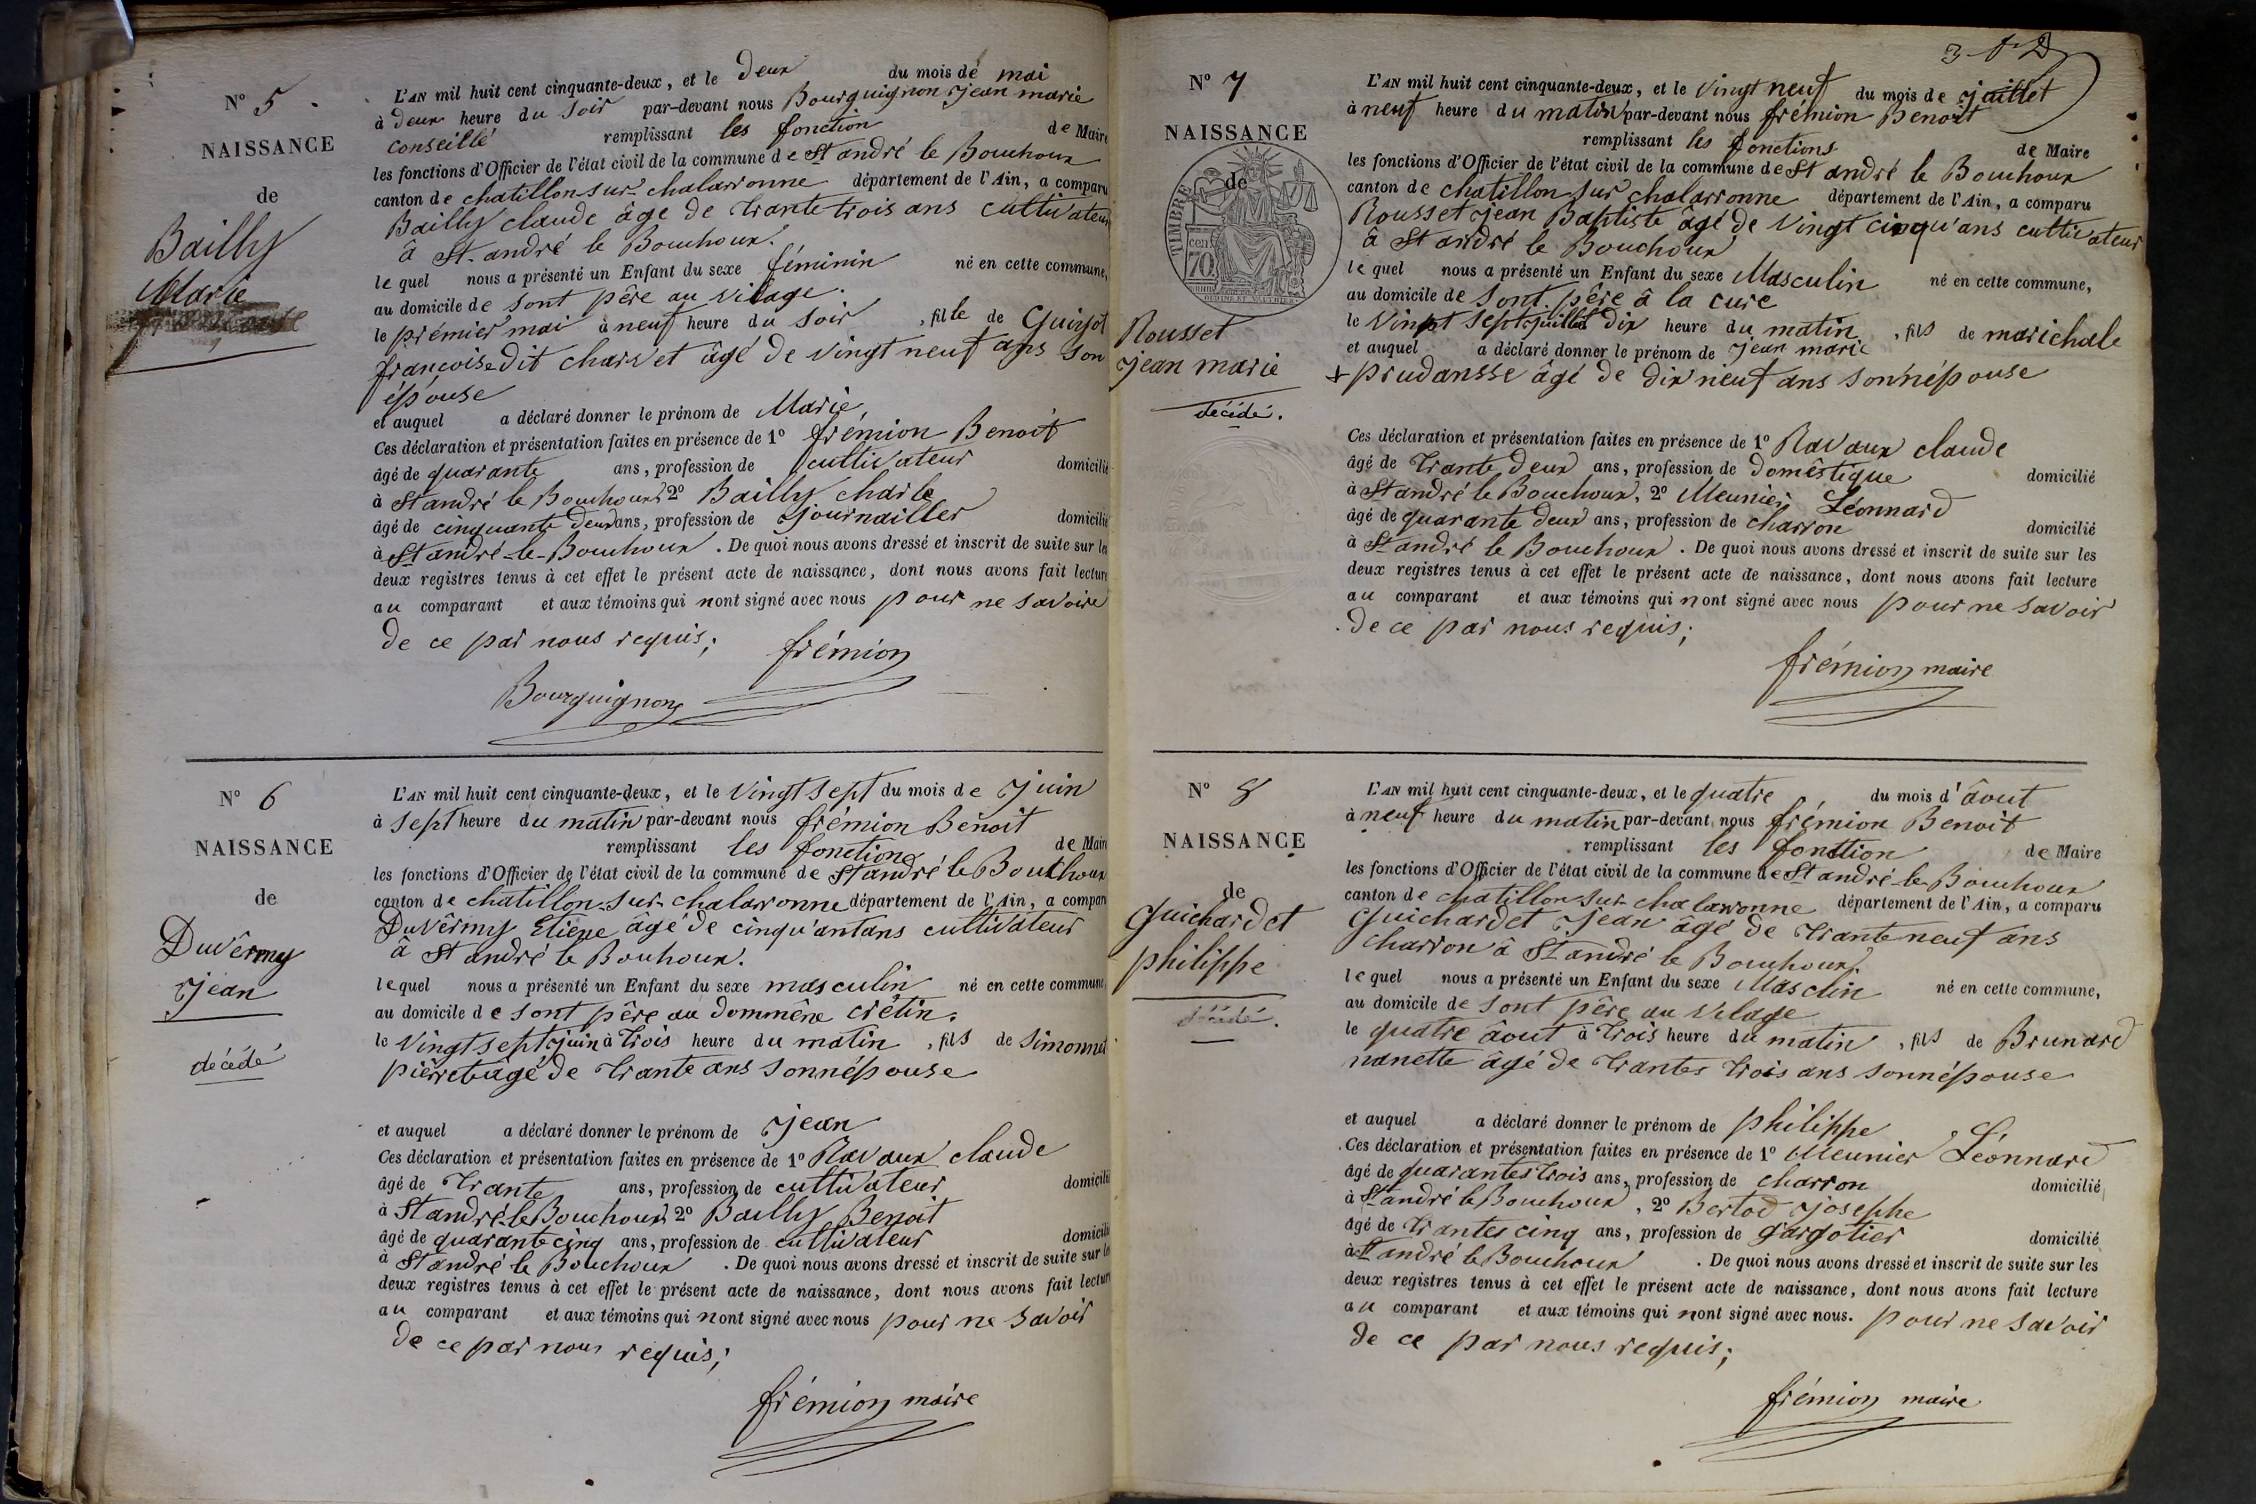 N° 5
NAISSANCE
de
Bailly
Marie
L'AN mil huit cent cinquante-deux, et le deux du mois de mai
à deux heure du soir par-devant nous Bourguignon jean marie
conseillé remplissant les fonction de Maire
les fonctions d'Officier de l'état civil de la commune de St andré le Bouchoux
canton de chatillon sur chalarronne département de l'Ain, a comparu
Bailly claude âge de trante trois ans cultivateur
à St. andré le Bouchoux.
lequel nous a présenté un Enfant du sexe féminin né en cette commune,
au domicile de sont père au vilage.
le prémier mai à neuf heure du soir, fille de Guigot
francoise dit charvet âgé de vingt neuf ans son
épouse
et auquel a déclaré donner le prénom de Marie,
Ces déclaration et présentation faites en présence de 1° frémion Benoit
âgé de quarante ans, profession de cultivateur domicilié
à St andré le Bouchoux, 2° Bailly charle
âgé de cinquante deux ans, profession de journailler domicilié
à St andré-le-Bouchoux. De quoi nous avons dressé et inscrit de suite sur les
deux registres tenus à cet effet le présent acte de naissance, dont nous avons fait lecture
au comparant et aux témoins qui nont signé avec nous pour ne savoire
de ce par nous requis;
frémion
Bourguignon
N° 6
NAISSANCE
de
Duvêrmy
jean
décédé
L'AN mil huit cent cinquante-deux, et le vingt sept du mois de juin
à sept heure du matin par-devant nous frémion Benoit
remplissant les fonctions de Maire
les fonctions d'Officier de l'état civil de la commune de St andré le Bouchoux
canton de chatillon-sur-chalarronne département de l'Ain, a comparu
Duvêrmy Etiêne âgé de cinqu'antans cultivateur
à St andré le Bouhoux.
lequel nous a présenté un Enfant du sexe masculin né en cette commune,
au domicile de sont père au dommêne crétin.
le vingt sept juin à trois heure du matin, fils de simonnet
pièrret âgé de trante ans sonnépouse
et auquel a déclaré donner le prénom de jean
Ces déclaration et présentation faites en présence de 1° Ravaux claude
âgé de trante ans, profession de cultivateur domicilié
à St andré-le Bouchoux, 2° Bailly Benoit
âgé de quarante cinq ans, profession de cultivateur domicilié
à St andré le Bouchoux. De quoi nous avons dressé et inscrit de suite sur les
deux registres tenus à cet effet le présent acte de naissance, dont nous avons fait lecture
au comparant et aux témoins qui nont signé avec nous pour ne savoir
de ce par nous requis;
frémion maire
N° 7
NAISSANCE
de
TIMBRE
70
Rousset
jean marie
décédé.
L'AN mil huit cent cinquante-deux, et le vingt neuf du mois de juillet
à neuf heure du matin par-devant nous frémion Benoit
remplissant les fonctions de Maire
les fonctions d'Officier de l'état civil de la commune de St andré le Bouchoux
canton de chatillon sur chalarronne département de l'Ain, a comparu
Rousset jean Baptiste âgé de vingt cinqu'ans cultivateur
à St andré le Bouchoux
lequel nous a présenté un Enfant du sexe Masculin né en cette commune,
au domicile de sont père à la cure
le vingt sept juillet dix heure du matin, fils de marichale
et auquel a déclaré donner le prénom de jean marie
+ prudansse âgé de dix neuf ans sonnépouse
Ces déclaration et présentation faites en présence de 1° Ravaux claude
âgé de trante deux ans, profession de domêstique domicilié
à St andré le Bouchoux, 2° Meunier Léonnard
âgé de quarante deux ans, profession de charron domicilié
à St andré le Bouchoux. De quoi nous avons dressé et inscrit de suite sur les
deux registres tenus à cet effet le présent acte de naissance, dont nous avons fait lecture
au comparant et aux témoins qui nont signé avec nous pour ne savoir
de ce par nous requis;
frémion maire
N° 8
NAISSANCE
de
guichardet
philippe
décédé.
L'AN mil huit cent cinquante-deux, et le quatre du mois d'âout
à neuf heure du matin par-devant nous frémion Benoit
remplissant les fonction de Maire
les fonctions d'Officier de l'état civil de la commune de St andré le Bouchoux
canton de chatillon sur chalarronne département de l'Ain, a comparu
guichardet jean âgé de trante neuf ans
charron à St andré le Bouchoux.
lequel nous a présenté un Enfant du sexe Masclin né en cette commune,
au domicile de sont père au velage
le quatre âout à trois heure du matin, fils de Brunard
nanette âgé de trantes trois ans sonnépouse
et auquel a déclaré donner le prénom de philippe
Ces déclaration et présentation faites en présence de 1° Meunier Léonnard
âgé de quarantes trois ans, profession de charron domicilié
à St andré le Bouchoux, 2° Bertod josephe
âgé de trantes cinq ans, profession de gargotier domicilié
à St andré le Bouchoux. De quoi nous avons dressé et inscrit de suite sur les
deux registres tenus à cet effet le présent acte de naissance, dont nous avons fait lecture
au comparant et aux témoins qui nont signé avec nous. pour ne savoir
de ce par nous requis;
frémion maire